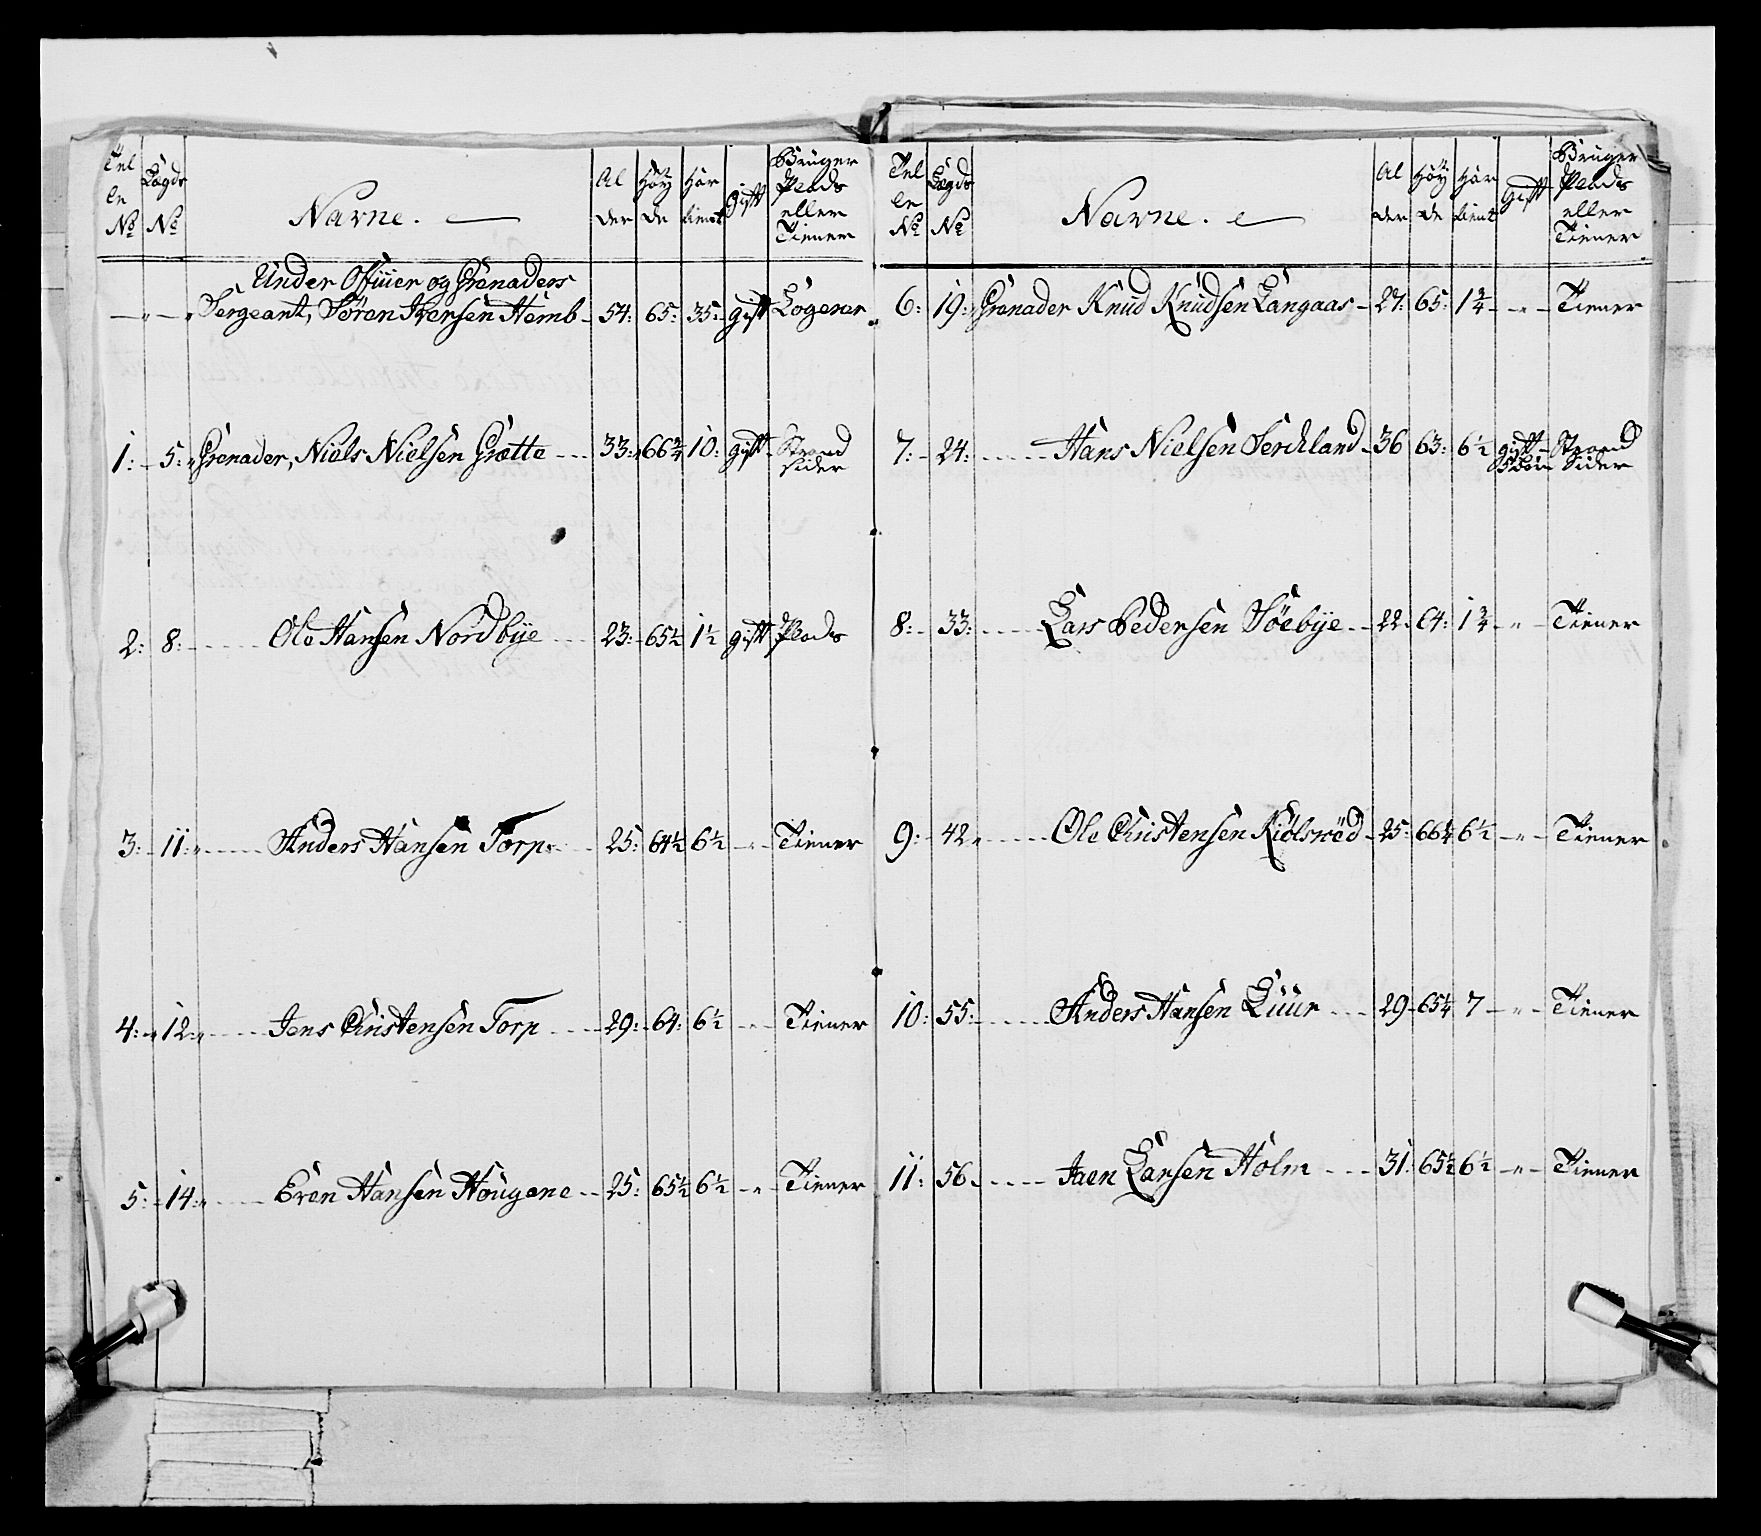 Tel Lægds Al Höy Har Bruger
le der de tient Gift Plads
No No Navne. eller
Tiener
Under Officier og Grenaders
Sergeant, Sören Iversen Hemb 54: 65: 35: gift Logerer
1: 5: Grenader, Niels Nielsen Grætte 33: 66¾ 10: gift Strand
sider
2: 8: Ole Hansen Nordbye 23: 65½ 1½ gift Plads
3: 11: Anders Hansen Torp 25: 64½ 6½ " Tiener
4: 12 Jens Christensen Torp 29: 64: 6½ " Tiener
5: 14: Even Hansen Hougene 25: 65½ 6½ " Tiener
Tel Lægds Al Höy Har Bruger
le der de tient Gift Plads
No No Navne. eller
Tiener
6: 19: Grenader Knud Knudsen Langaas 27: 65: 1¾ " Tiener
7: 24: Hans Nielsen Serckland 36 63: 6½ gift Strand
Sider
8: 33: Lars Pedersen Söebye 22 64: 1¾ " Tiener
9: 42 Ole Christensen Kiölsröd 25: 66¼ 6½ " Tiener
10: 55: Anders Hansen Luur 29 65¼ 7 " Tiener
11: 56 Jaen Larsen Holm 31: 65½ 6½ " Tiener